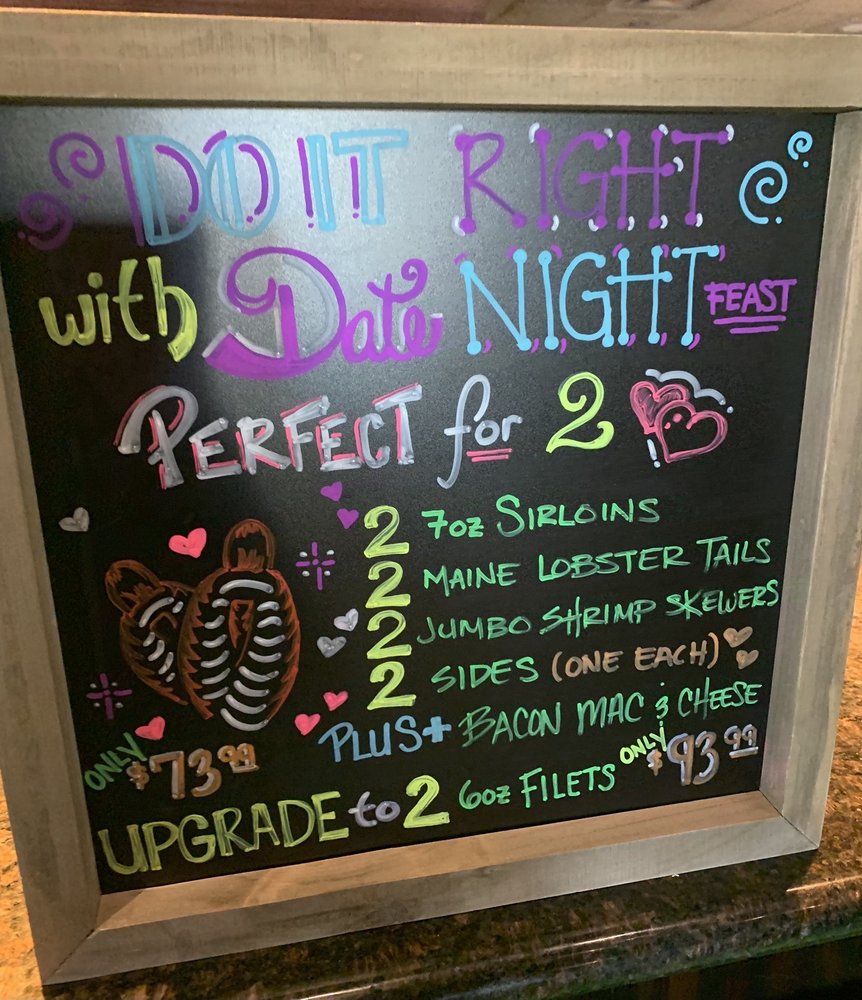 DO IT RIGHT
with Date NIGHT FEAST
PERFECT for 2
2 7oz SIRLOINS
2 MAINE LOBSTER TAILS
2 JUMBO SHRIMP SKEWERS
2 SIDES (ONE EACH)
PLUS+ BACON MAC & CHEESE
ONLY $73.99
UPGRADE to 2 6oz FILETS ONLY $93.99